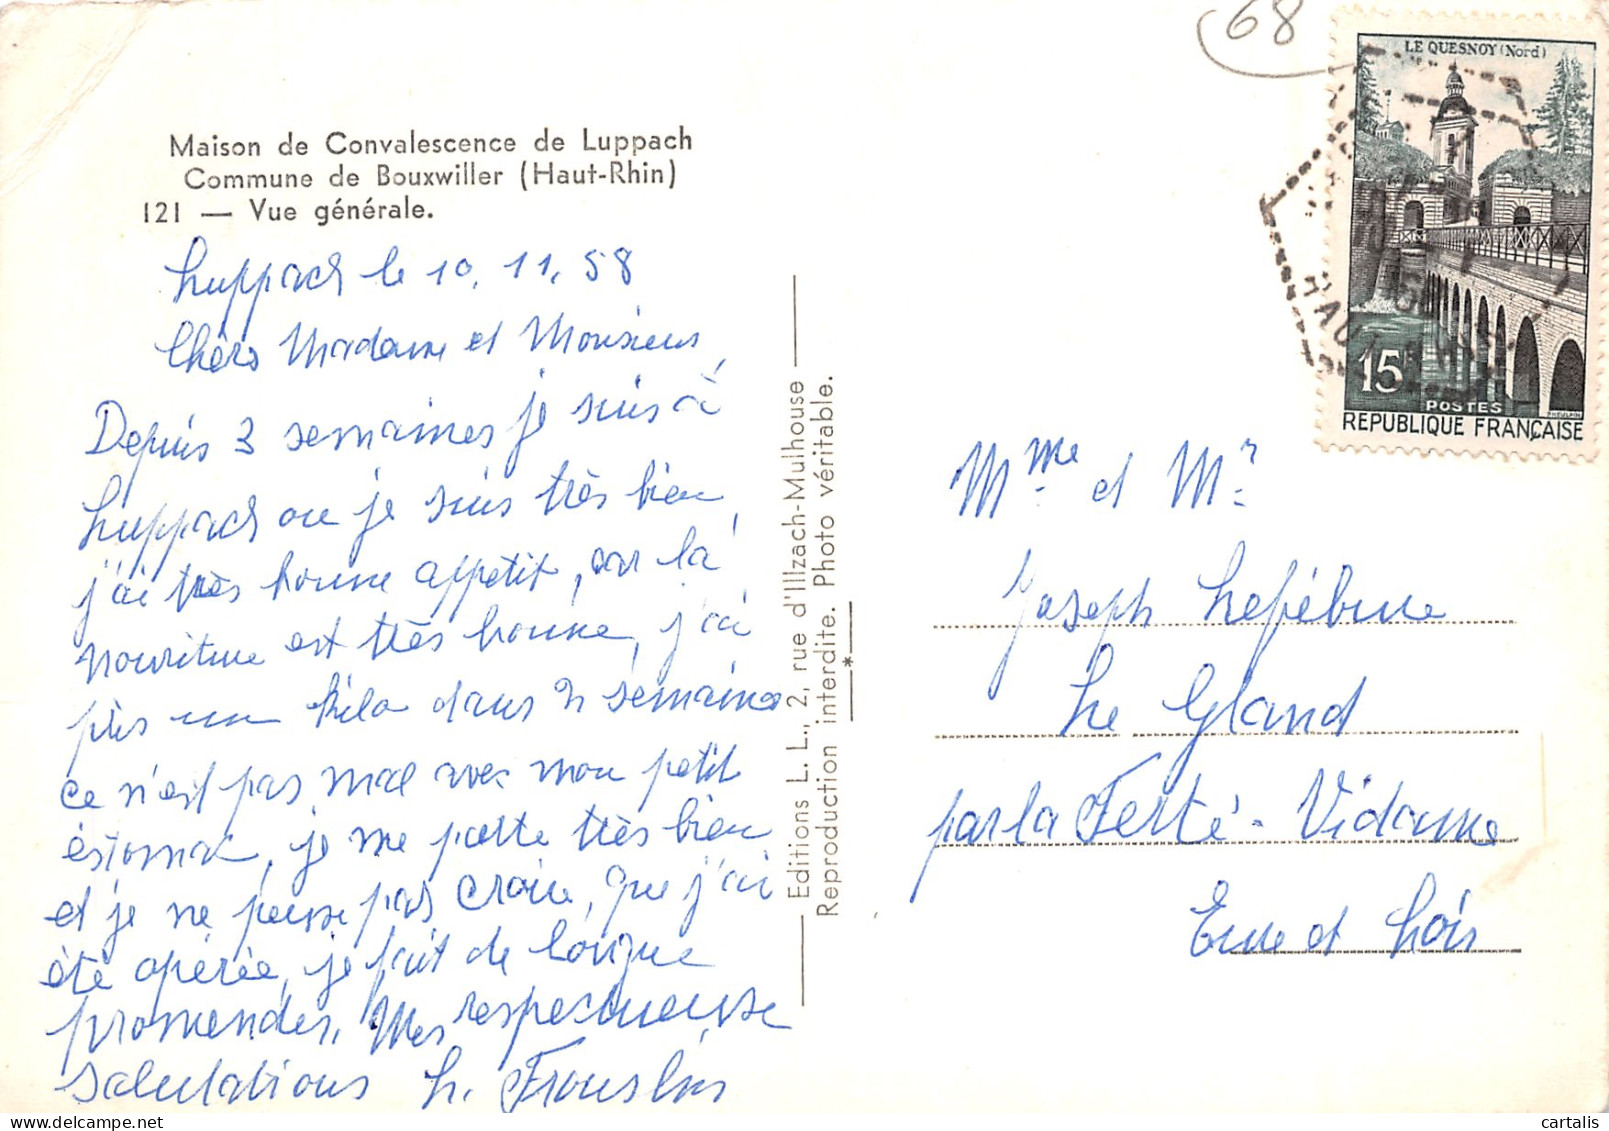 68
Maison de Convalescence de Luppach
Commune de Bouxwiller (Haut-Rhin)
121 — Vue générale.
Luppach le 10.11.58
Chèrs Madame et Monsieur,
Depuis 3 semaines je suis à
Luppach ou je suis très bien,
j'ai très bonne appetit, car la
nouriture est très bonne, j'ai
pris un kilo dans 2 semaines
ce n'est pas mal avec mon petit
éstomac, je me porte très bien
et je ne pense pas croire, que j'ai
été opérée, je fait de longue
promendes. Mes respectueuse
salutations L.
Editions L. L., 2, rue d'Illzach-Mulhouse
Reproduction interdite. Photo véritable.
*
LE QUESNOY (Nord)
15
POSTES
REPUBLIQUE FRANÇAISE
HAUT-RHIN
Mme et Mr
Joseph Lefébure
Le Gland
par la Ferté-Vidame
Eure et Loir
cartalis